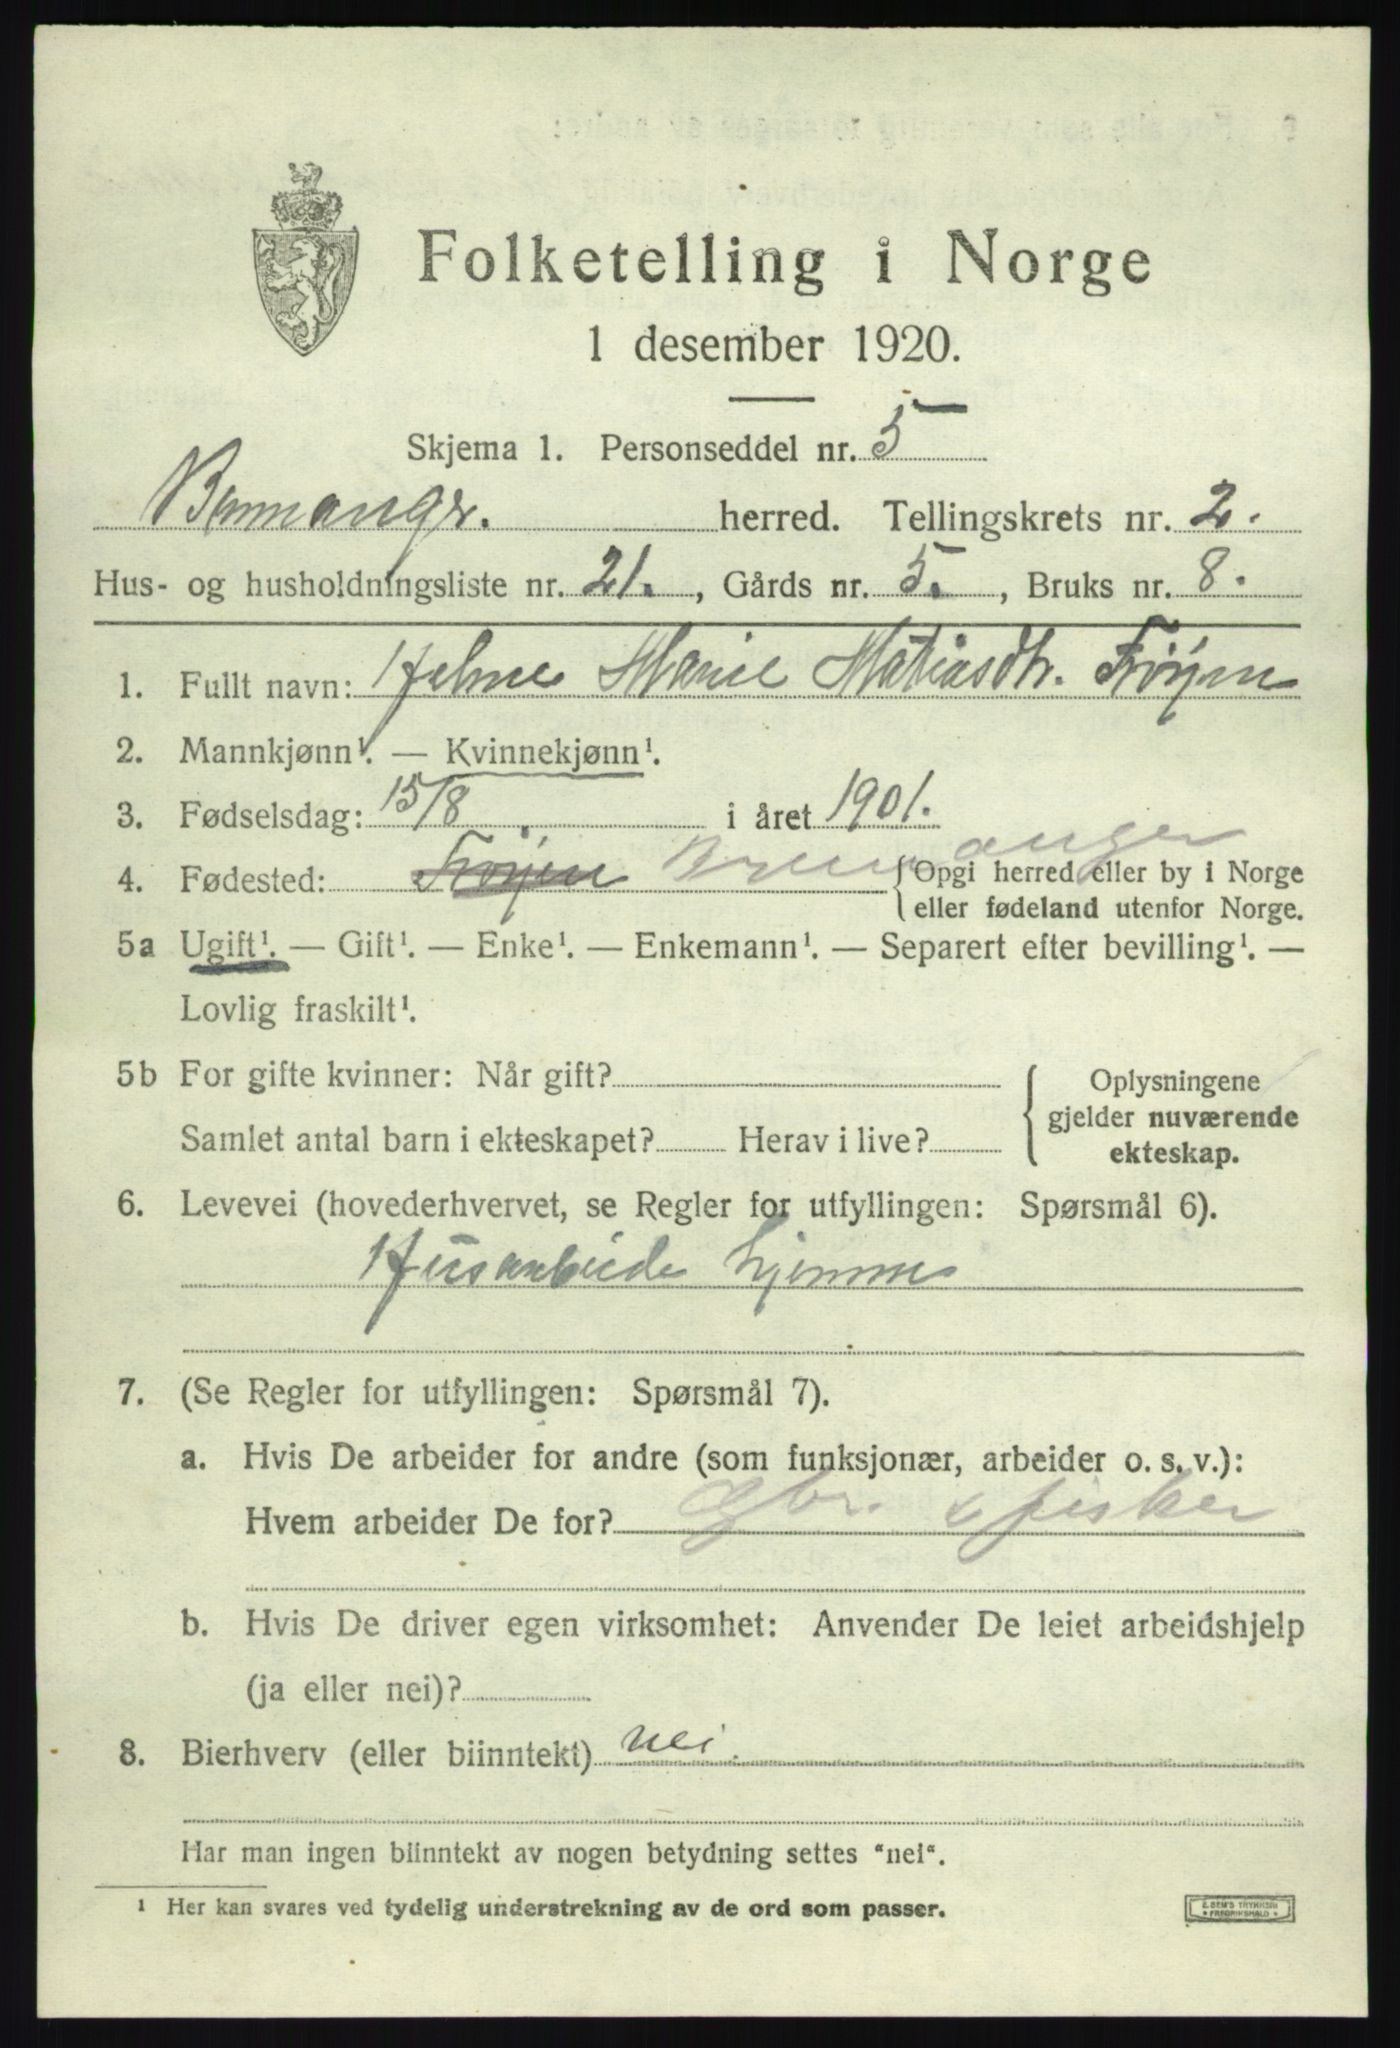 Folketelling i Norge
1 desember 1920.
Skjema 1. Personseddel nr. 5
Bremanger. herred. Tellingskrets nr. 2.
Hus- og husholdningsliste nr. 21., Gårds nr. 5., Bruks nr. 8.
1. Fullt navn: Marie Matiasdtr. Frøyen
2. Mannkjønn¹. — Kvinnekjønn¹.
3. Fødselsdag: 15/8 i året 1901.
4. Fødested: Frøyen Bremanger {Opgi herred eller by i Norge
eller fødeland utenfor Norge.
5a Ugift¹. — Gift¹. — Enke¹. — Enkemann¹. — Separert efter bevilling¹. —
Lovlig fraskilt¹.
5b For gifte kvinner: Når gift? { Oplysningene
gjelder nuværende
Samlet antal barn i ekteskapet? Herav i live?
ekteskap.
6. Levevei (hovederhvervet, se Regler for utfyllingen: Spørsmål 6).
Husarbeide hjemme
7. (Se Regler for utfyllingen: Spørsmål 7).
a. Hvis De arbeider for andre (som funksjonær, arbeider o. s. v.):
Hvem arbeider De for? Gbr. & fisker
b. Hvis De driver egen virksomhet: Anvender De leiet arbeidshjelp
(ja eller nei)?
8. Bierhverv (eller biinntekt) nei.
Har man ingen biinntekt av nogen betydning settes "nei".
¹ Her kan svares ved tydelig understrekning av de ord som passer.
E. SEM'S TRYKKERI
* FREDRIKSHALD *